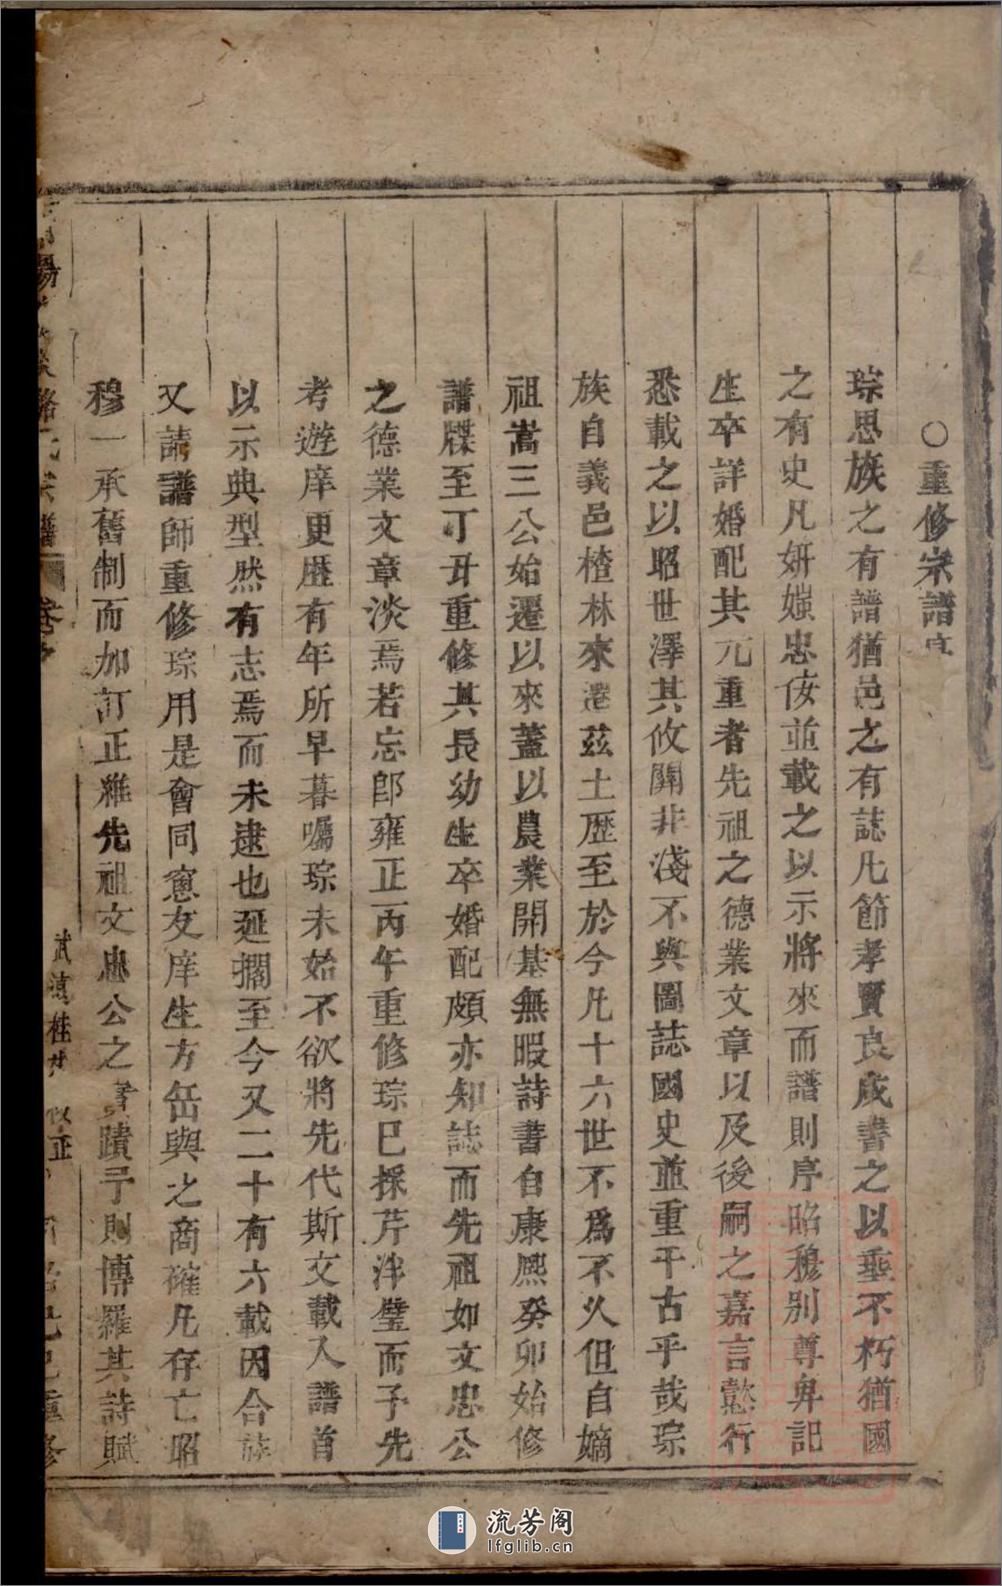 ○重修宗譜序
琮思族之有譜猶邑之有誌凡節孝賢良咸書之以垂不朽猶國
之有史凡妍媸忠侫並載之以示將來而譜則序昭穆別尊卑記
生卒詳婚配其尤重者先祖之德業文章以及後嗣之嘉言懿行
悉載之以昭世澤其攸關非淺不與圖誌國史並重千古乎哉琮
族自義邑楂林來遷茲土歷至於今凡十六世不爲不久但自嫡
祖嵩三公始遷以來蓋以農業開基無暇詩書自康熙癸卯始修
譜牒至丁丑重修其長幼生卒婚配頗亦知誌而先祖如文忠公
之德業文章淡焉若忘卽雍正丙午重修琮已採芹泮璧而予先
考遊庠更歷有年所早暮囑琮未始不欲將先代斯文載入譜首
以示典型然有志焉而未逮也延擱至今又二十有六載因合族
又請譜師重修琮用是會同窻友庠生方缶與之商確凡存亡昭
穆一承舊制而加訂正雖先祖文忠公之書蹟予則傳羅其詩賦
陽 駱氏宗譜 卷之
桂 正 重修
流芳阁
lfglib.cn